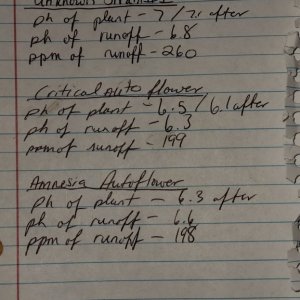 Unknown Strain
ph of plant - 7 / 7.1 after
ph of runoff - 6.8
ppm of runoff - 260
Critical Auto flower
ph of plant - 6.5 / 6.1 after
ph of runoff - 6.3
ppm of runoff - 199
Amnesia Autoflower
ph of plant - 6.3 after
ph of runoff - 6.6
ppm of runoff - 198